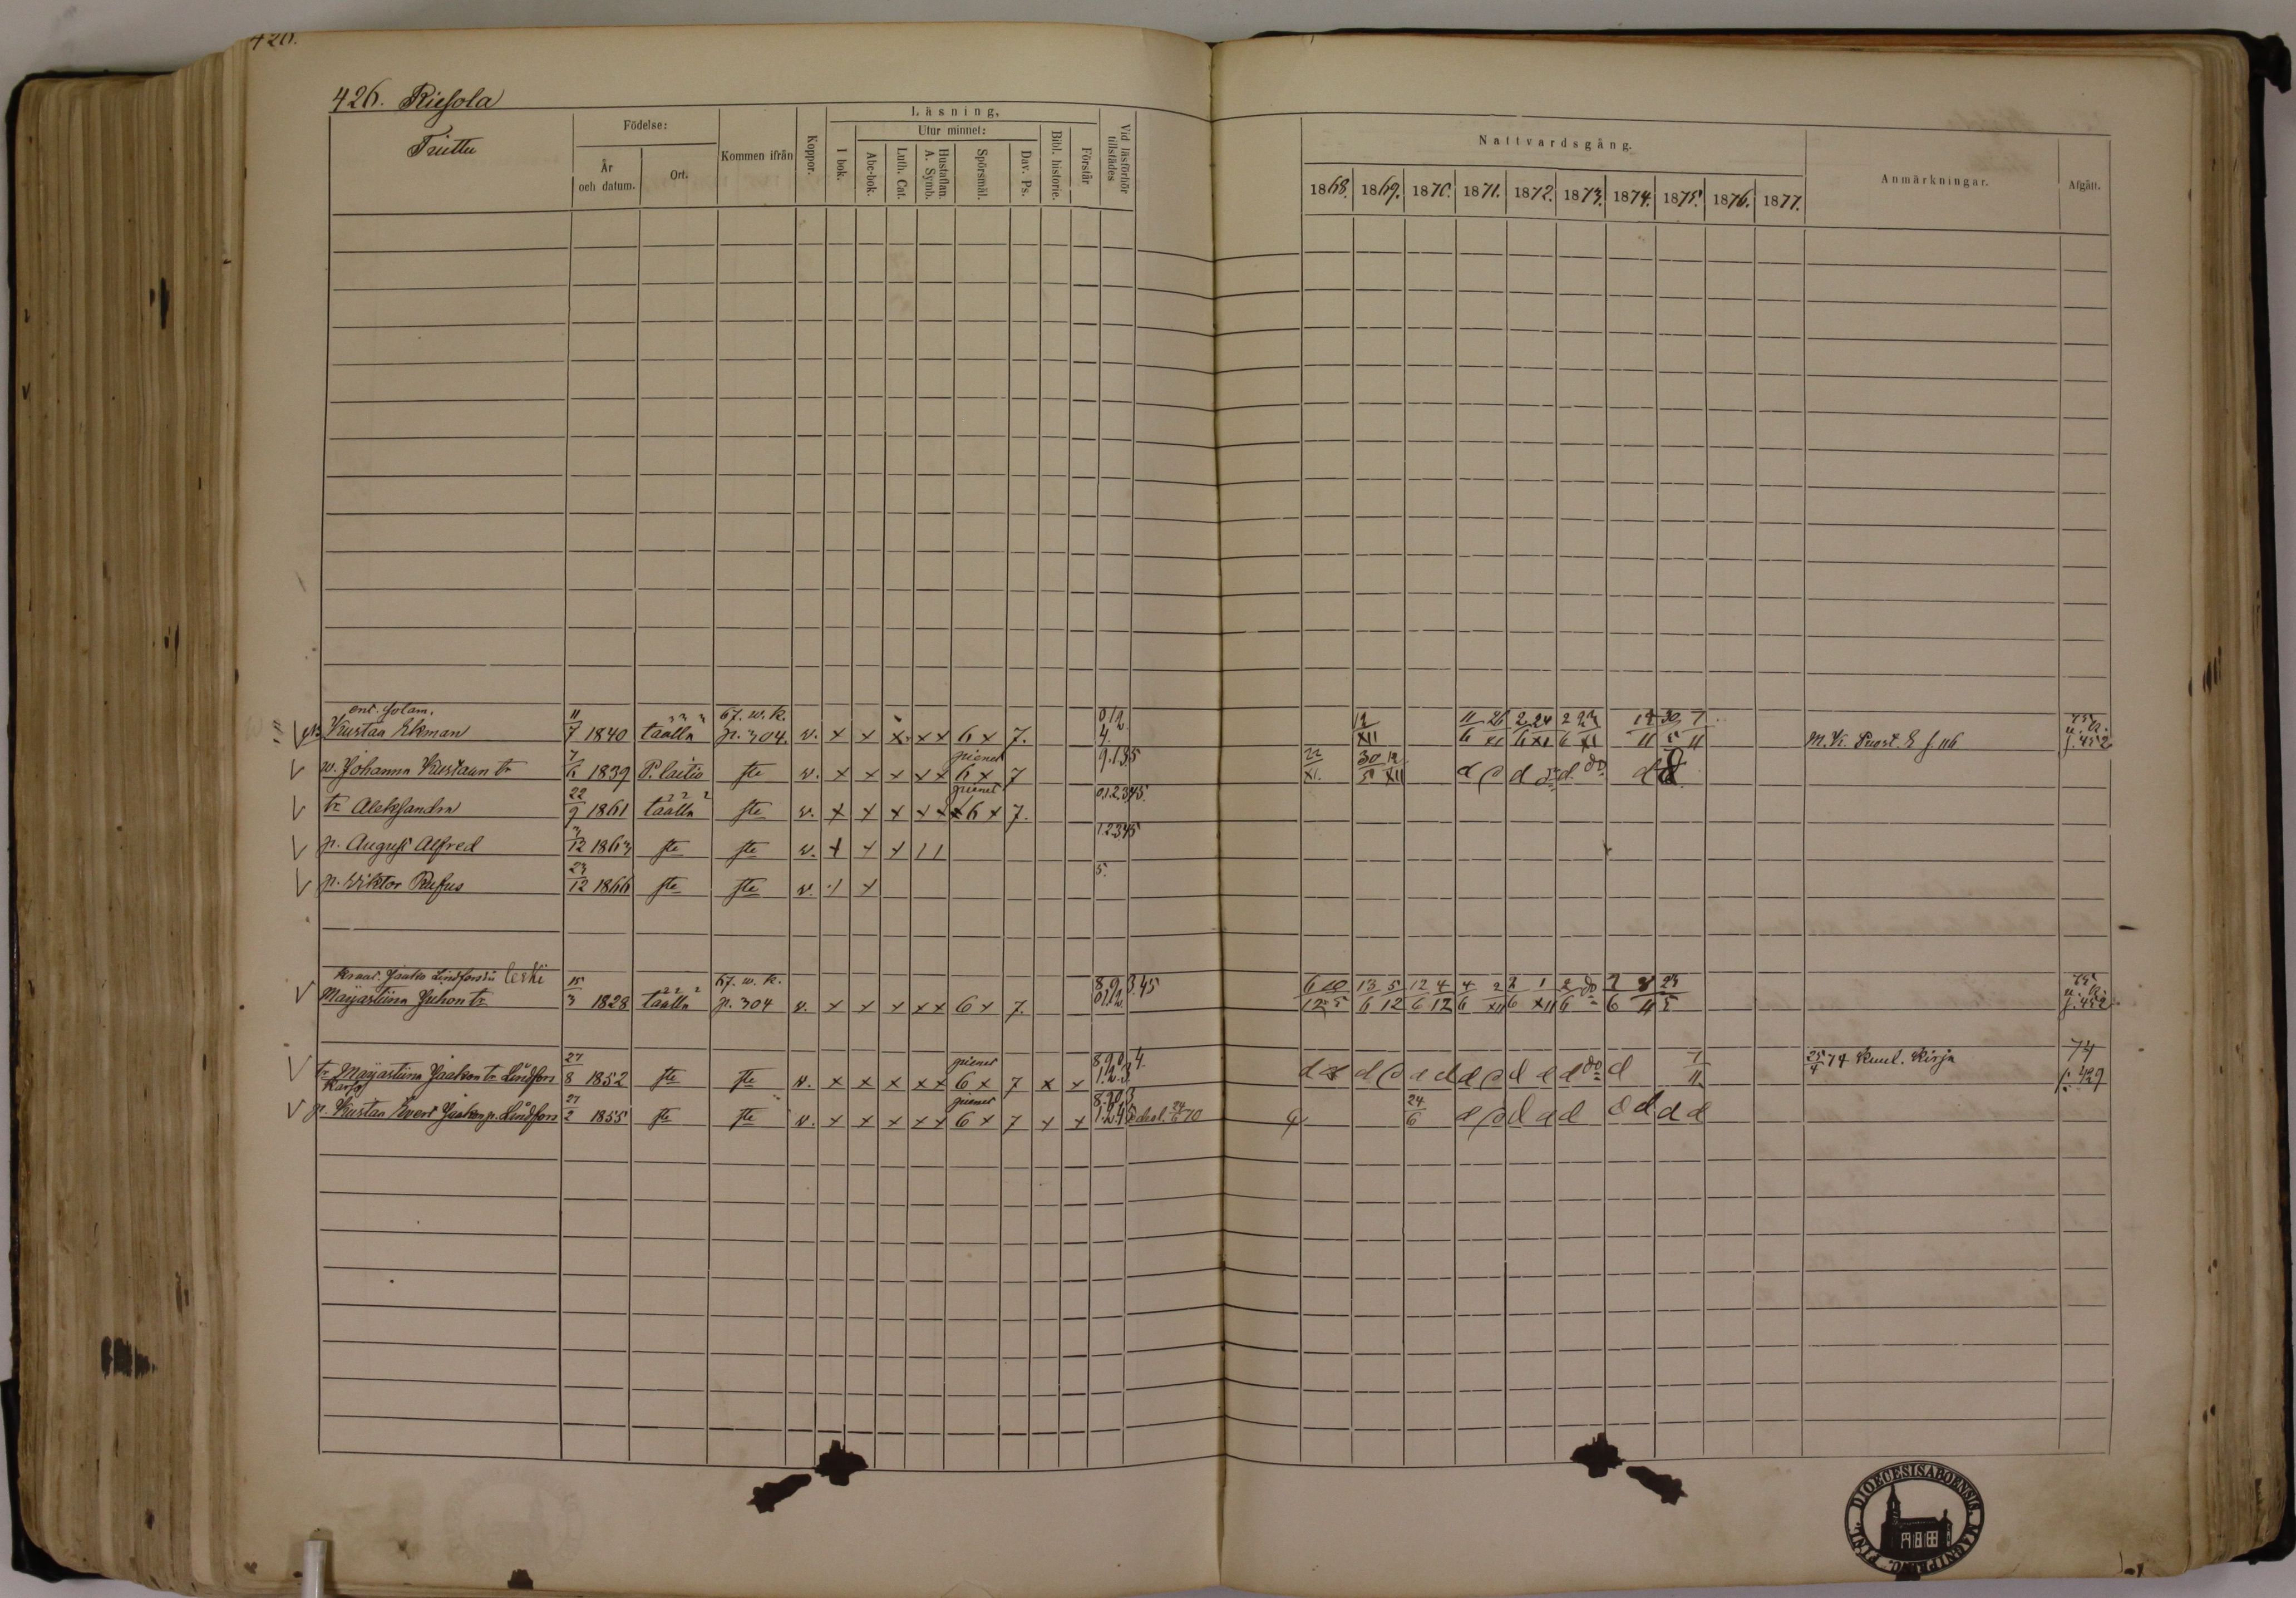 426. Riesola
Frittu
Födelse:
År och datum.
Ort.
Kommen ifrån
Koppor.
Läsning,
I bok.
Utur minnet:
Abc-bok.
Luth. Cat.
Hustaflan. A. Symb.
Spörsmål.
Dav. Ps.
Bibl. historie.
Förstår
Vid läsförhör tillstädes
Nattvardsgång.
1868. 1869. 1870. 1871. 1872. 1873. 1874. 1875. 1876. 1877.
Anmärkningar.
Afgått.
ent. solam.
Kustaa Ekman 11/7 1840 täällä 67. w. k. p. 304. v. x x x x x 6 x 7. 0 1 2 4. 12/XII 11/6 26/XI 2/6 24/XI 2/6 23/XI 30/5 7/11 M. Ki. Puost. E s. 116 75 u. k. s. 452
w. Johanna Kustaan tr 7/6 1839 P. laitio ste v. x x x x x pienet 6 x 7 9.1.3.5 22/XI. 30/5 12/XII d d d d d do d d
tr Aleksandra 22/9 1861 täällä ste v. x x x x x pienet 6 x 7. 0.1.2.3.4.5.
p. August Alfred 3/12 1863 ste ste v. x x x 1 1 1.2.3.4.5
p. Viktor Rufus 23/12 1866 ste ste v. 1 x 5.
Jaakko Lindforsin leski
Maijastiina Juhon tr 15/3 1828 täällä 67. w. k. p. 304 v. x x x x x 6 x 7. 8.9. 3.45 0.1.2. 13/6 5/12 12/6 4/12 4/6 2/XII 2/6 1/XII 2/6 do 7/6 8/11 23/5 75 u. k. s. 452
tr Maijastiina Jaakon tr Lindfors 27/8 1852 ste ste v. x x x x x pienet 6 x 7 x x 8.9.0. 4. 1.2.3. d d d d d d d d d d do d 7/11 25/4 74 Kuul. Kirja 74 s. 429
p. Kustaa Evert Jaakon p. Lindfors 27/2 1855 ste ste v. x x x x x pienet 6 x 7 x x 24/6 70 24/6 d d d d d d d d d
DIOECESIS ABOENSIS. MAGNI PRINC. FINL.